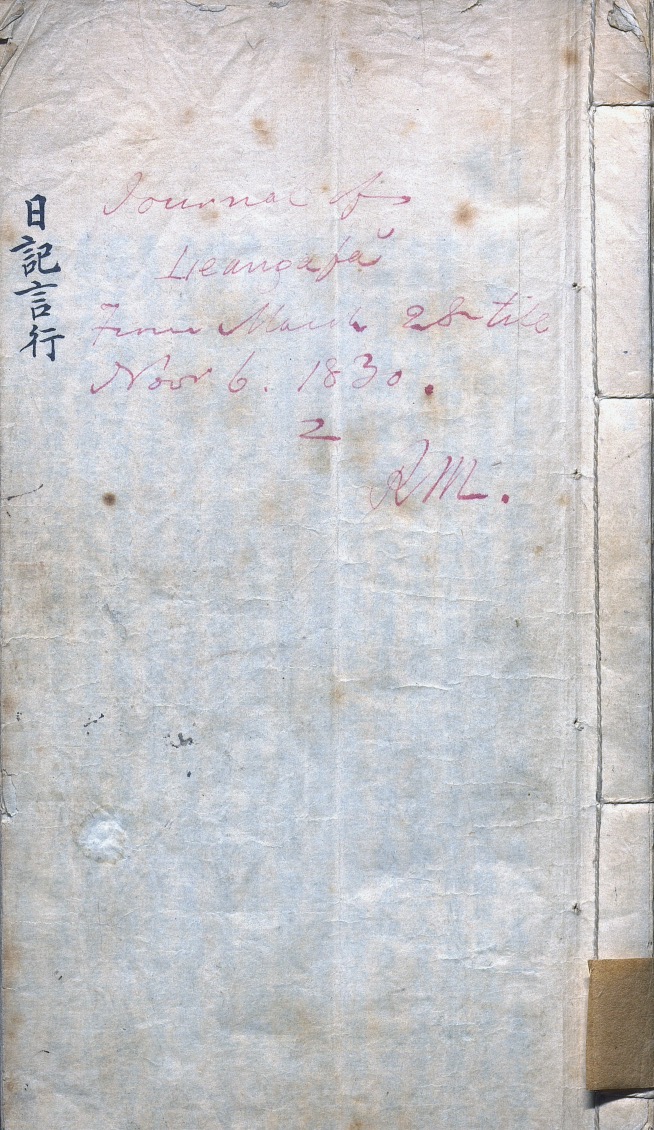 日記言行
Journal of
Leangafă
From March 28 till
Novr 6. 1830.
2
RM.